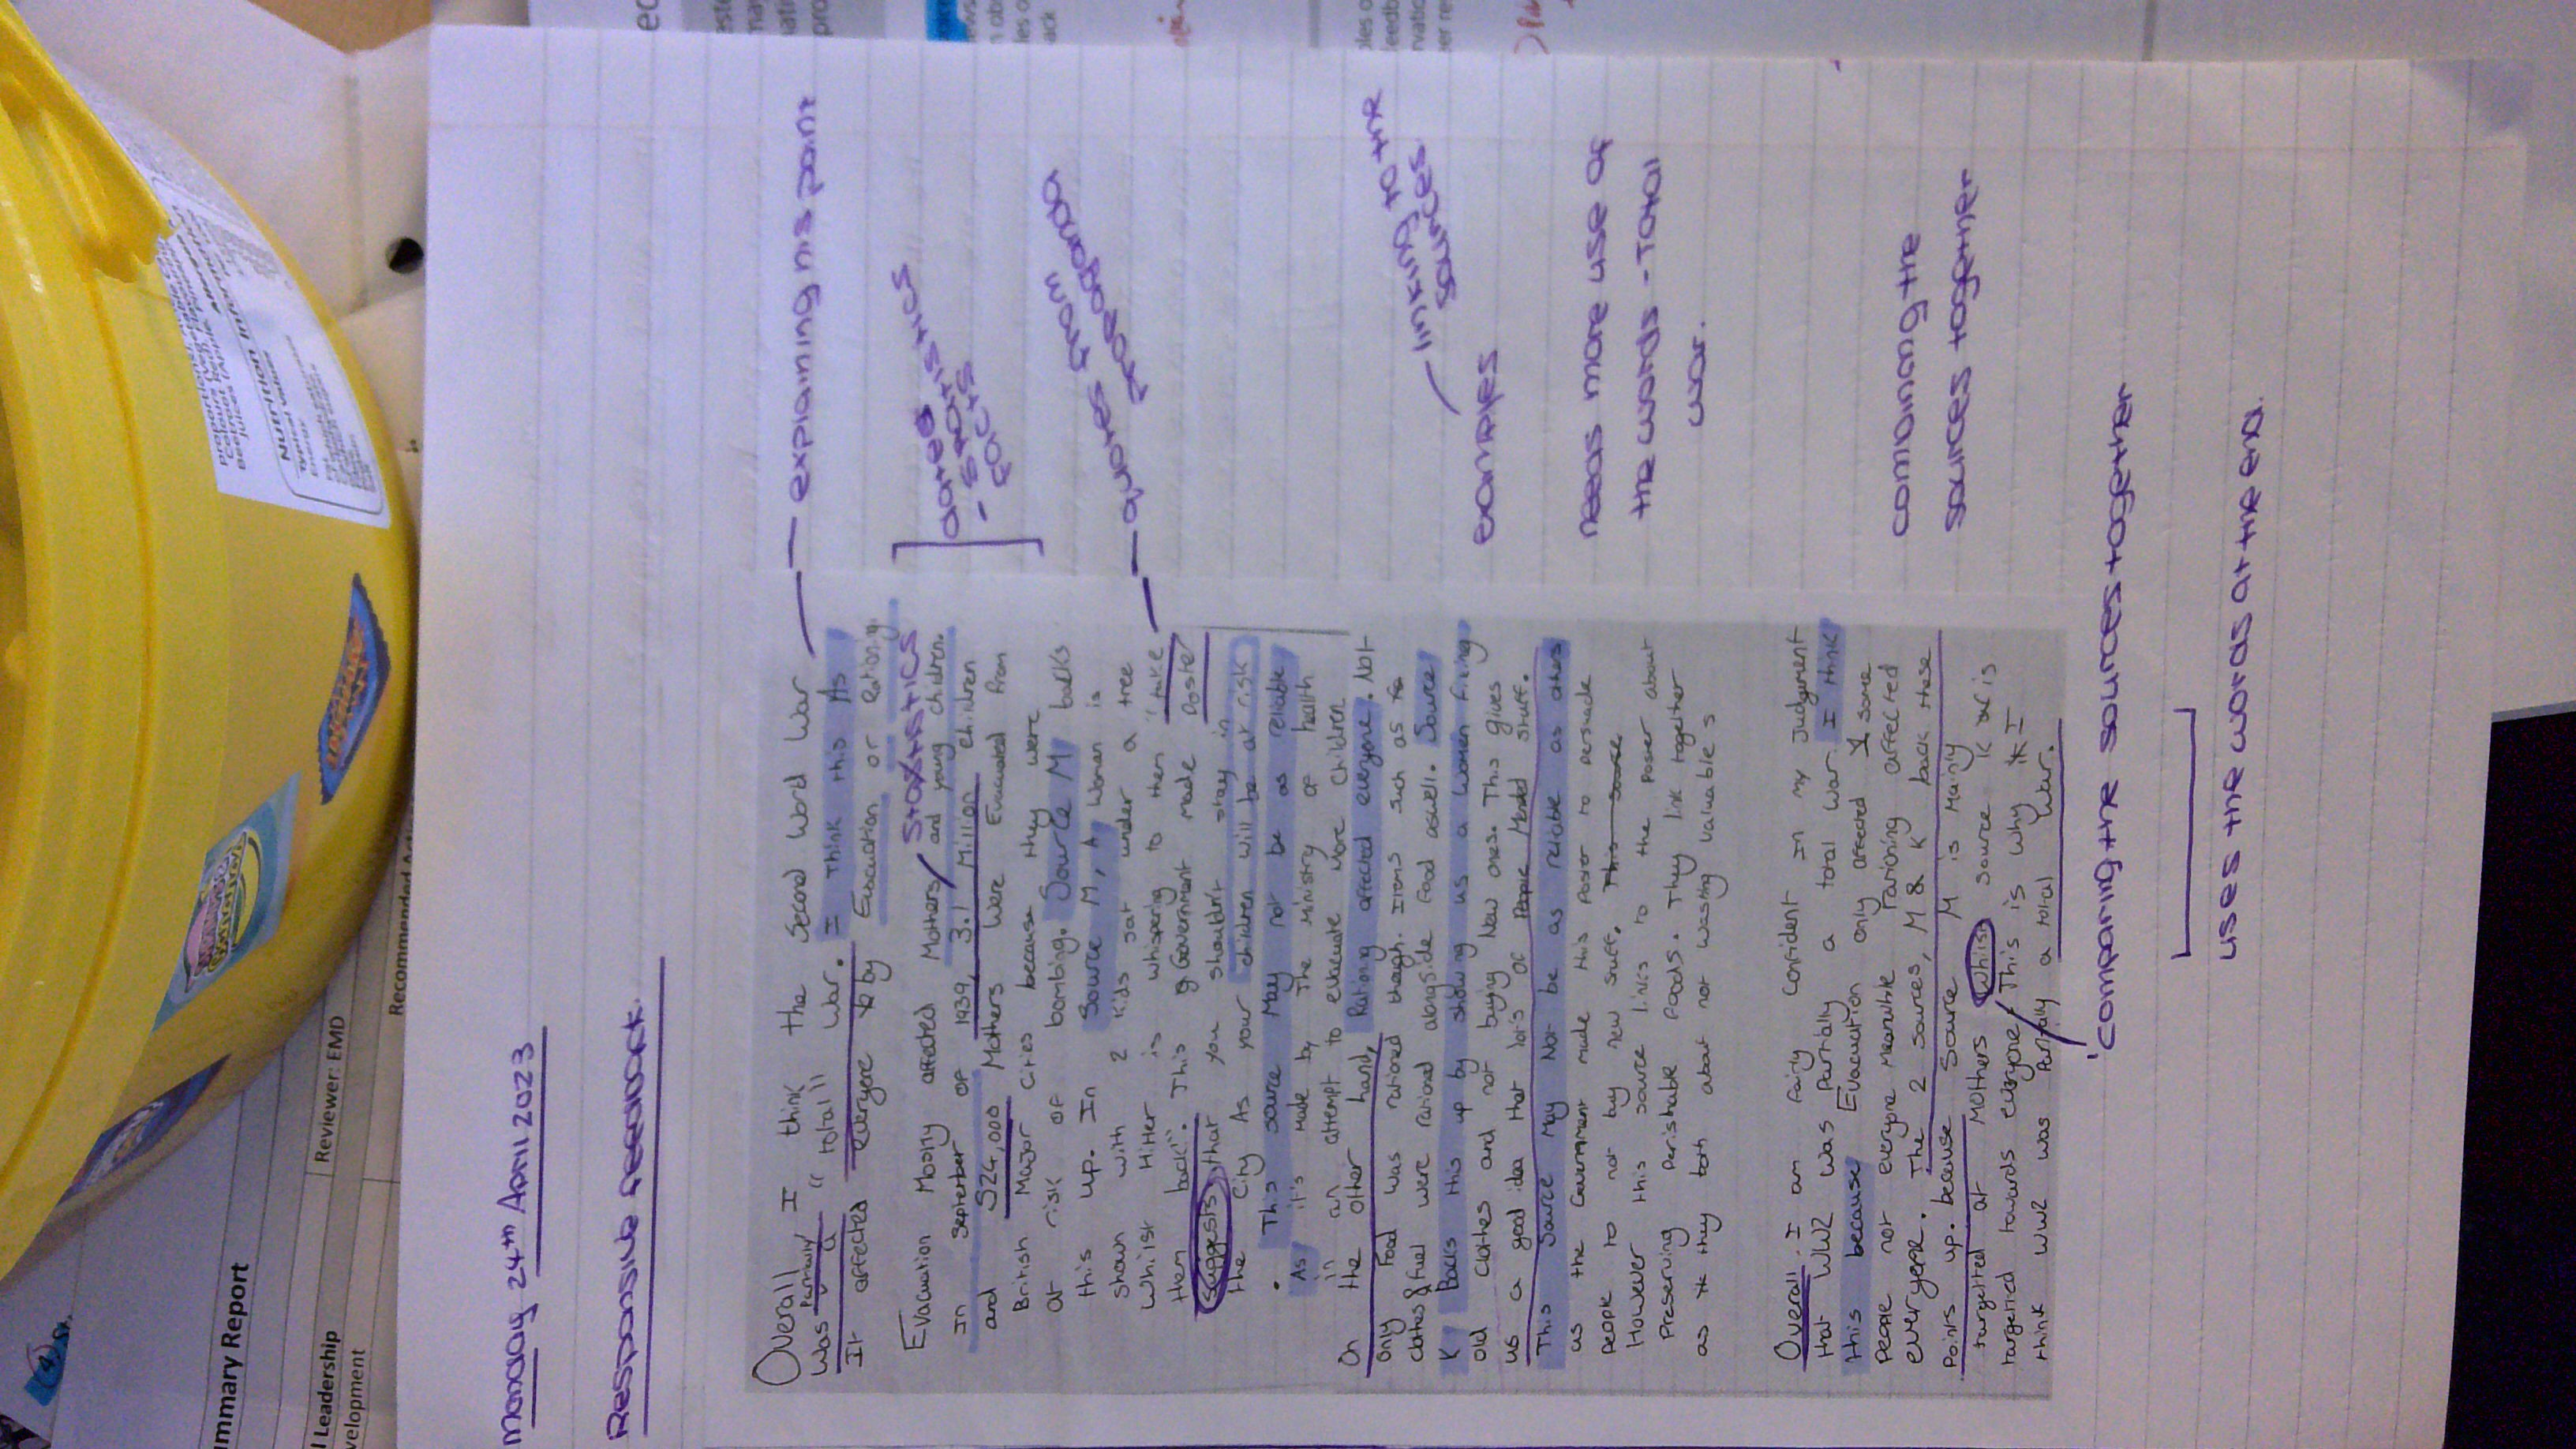 Monday 24th April 2023
Responsive feedback.
Overall I think the Second World War
Was Partially a "total" War. I think this As
It affected Everyone by Evacuation or Rationing.
Evacuation Mostly affected Mothers and young children.
STATISTICS
In September of 1939, 3.1 Million children
and 524,000 Mothers Were Evacuated from
British Major Cities because they were
at risk of bombing. Source M backs
this up. In Source M, A Woman is
Shown with 2 kids sat under a tree
Whilst Hitler is whispering to them "take
them back". This Government made Poster
suggests that you shouldn't stay in
the City As your children will be at risk
. This source May not be as reliable
As it's made by The Ministry of health
in an attempt to evacuate More Children
On the other hand, Rationing affected everyone. Not
only Food was rationed though. Items such as
clothes & fuel were rationed alongside food aswell. Source
K Backs this up by showing us a women fixing
old clothes and not buying New ones. This gives
us a good idea that lots of People Mended Stuff.
This Source May Not be as reliable as others
as the Government made this Poster to persuade
people to not buy new Stuff. This source
However this source links to the Poster about
Preserving Perishable foods. They link together
as they both about not wasting valuable s
Overall, I am fairly confident In my Judgement
that WW2 was Partially a total War. I think
this because Evacuation only affected some
people not everyone Meanwhile rationing affected
everyone. The 2 sources, M & K back these
Points up. because Source M is Mainly
targetted at Mothers Whilst source K is
targetted towards everyone. This is why I
think WW2 was Partially a total War.
explaining his point
dates
- statistics
facts
quotes from
propoganda
linking to the
sources
examples
needs more use of
the words - Total
war.
combining the
sources together
'comparing the sources together
uses the words at the end.
Summary Report
Reviewer: EMD
Leadership
Nutrition Information
DRUMSTICK